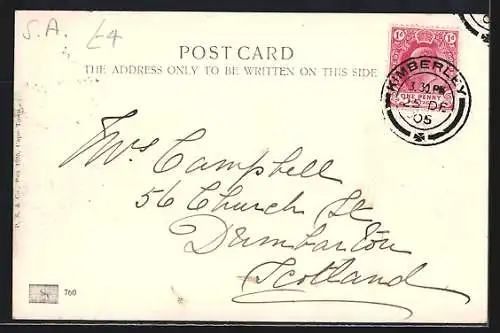 S.A. £4
POST CARD
THE ADDRESS ONLY TO BE WRITTEN ON THIS SIDE
1d 1d
ONE PENNY
KIMBERLEY
3.30 PM
25 DE
05
Mrs Campbell
56 Church St
Dumbarton
Scotland
760